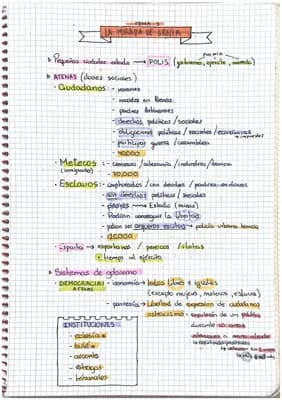 TEMA 3
LA MIRADA DE GRECIA
propio
Pequeñas ciudades estado → POLIS (gobierno, ejército, moneda)
ATENAS (clases sociales)
Ciudadanos: - varones
- nacidos en Atenas
- padres Atenienses
- derechos políticos / sociales
- obligaciones políticas / sociales / económicas
→ impuestos
- participar guerra / asambleas
- 40.000
Metecos: - comercio / artesanía / industria /
(inmigrados) - 70.000
Esclavos: - capturados / con deudas / padres esclavos
- sin derechos políticos / sociales
→ Estado (minas)
- Podían conseguir la libertad
- podían ser arqueros escitas → policía urbana
Esparta → espartanos / periecos / ilotas
+ tiempo al ejército
Sistemas de gobierno
DEMOCRACIA: - isonomía → todos libres e iguales
ATENAS
(excepto mujeres, metecos, esclavos)
- parresía → libertad de expresión de ciudadanos
ostracismo - expulsión de un político
durante 10 años
INSTITUCIONES
- ecclesía
- bulé
- arconte
- estrategas
- tribunales